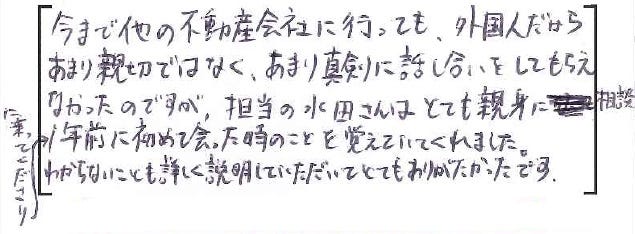 今まで他の不動産会社に行っても、外国人だから
あまり親切ではなく、あまり真剣に話し合いをしてもらえ
なかったのですが、担当の水田さんはとても親身に相談
に乗ってくださり
1年前に初めて会った時のことを覚えていてくれました。
わからないことも詳しく説明していただいてとてもありがたかったです.